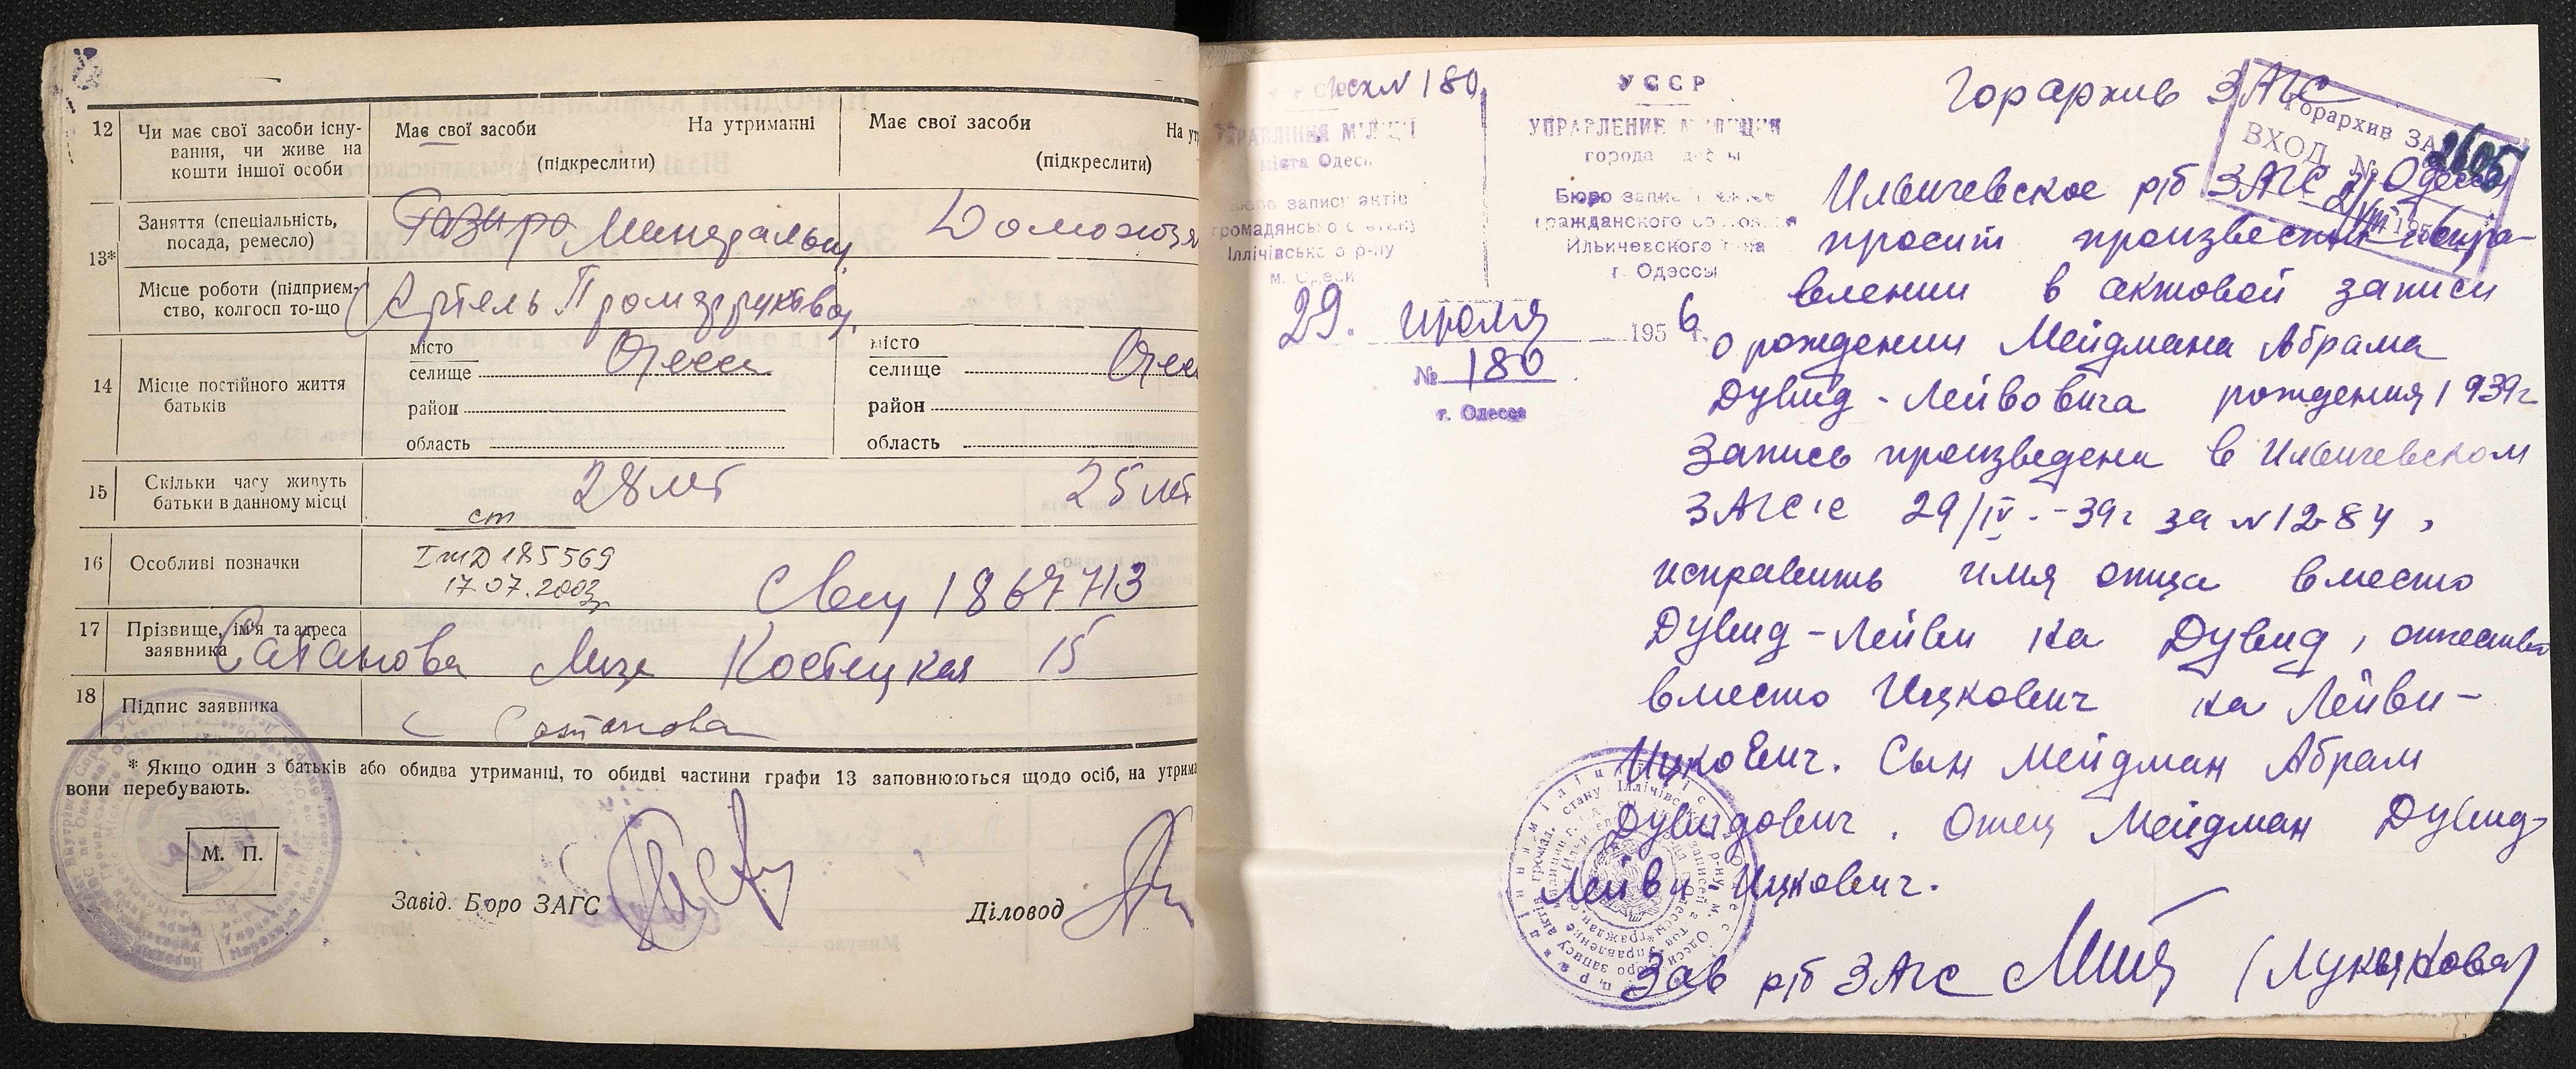 12
Чи має свої засоби існу-
вання, чи живе на
кошти іншої особи
Має свої засоби На утриманні
(підкреслити)
Має свої засоби На ут
(підкреслити)
13*
Заняття (спеціальність,
посада, ремесло)
Місце роботи (підприєм-
ство, колгосп то-що
Артель
14
Місце постійного життя
батьків
місто
селище Одесса
район
область
місто
селище
район
область
15
Скільки часу живуть
батьки в данному місці
28 лет
25 лет
16
Особливі позначки
ст
I жД 185569
17.07.2003
1867713
17
Прізвище, ім'я та адреса
заявника
Сатанова Костецкая 15
18
Підпис заявника
Сатанова
* Якщо один з батьків або обидва утриманці, то обидві частини графи 13 заповнюються щодо осіб, на утрима
вони перебувають.
М. П.
Завід. Бюро ЗАГС
Діловод
№ 180
УПРАВЛІННЯ МІЛІЦІЇ
міста Одеси
Бюро запису актів
громадянського стану
Іллічівського р-ну
м. Одеси
УССР
УПРАВЛЕНИЕ МИЛИЦИИ
города Одессы
Бюро записи актов
гражданского состояния
Ильичевского р-на
г. Одессы
29. июля 1956 г.
№ 180
г. Одесса
Горархив ЗАГС
Горархив ЗА
ВХОД №
Ильичевское р/б ЗАГС г. Одессы
просит произвести испра-
влении в актовой записи
о рождении Мейдмана Абрама
Дувид-Лейвовича рождения 1939 г
Запись произведена в Ильичевском
ЗАГС'е 29/IV.-39 г за № 1284,
исправить имя отца вместо
Дувид-Лейви на Дувид, отчество
вместо Ицкович на Лейви-
Ицкович. Сын Мейдман Абрам
Дувидович. Отец Мейдман Дувид-
Лейви Ицкович.
Зав р/б ЗАГС (Лукьянова)